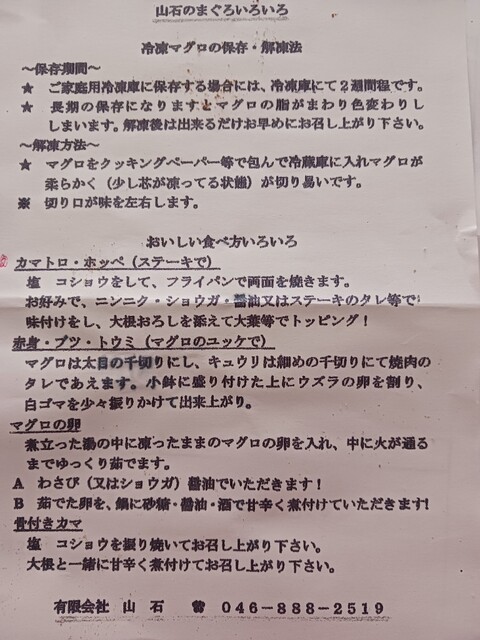 山石のまぐろいろいろ
冷凍マグロの保存・解凍法
～保存期間～
★ ご家庭用冷凍庫に保存する場合には、冷凍庫にて２週間程です。
★ 長期の保存になりますとマグロの脂がまわり色変わりし
しまいます。解凍後は出来るだけお早めにお召し上がり下さい。
～解凍方法～
★ マグロをクッキングペーパー等で包んで冷蔵庫に入れマグロが
柔らかく（少し芯が凍ってる状態）が切り易いです。
※ 切り口が味を左右します。
おいしい食べ方いろいろ
カマトロ・ホッペ（ステーキで）
塩 コショウをして、フライパンで両面を焼きます。
お好みで、ニンニク・ショウガ・醤油又はステーキのタレ等で
味付けをし、大根おろしを添えて大葉等でトッピング！
赤身・ブツ・トウミ（マグロのユッケで）
マグロは太目の千切りにし、キュウリは細めの千切りにて焼肉の
タレであえます。小鉢に盛り付けた上にウズラの卵を割り、
白ゴマを少々振りかけて出来上がり。
マグロの卵
煮立った湯の中に凍ったままのマグロの卵を入れ、中に火が通る
までゆっくり茹でます。
A わさび（又はショウガ）醤油でいただきます！
B 茹でた卵を、鍋に砂糖・醤油・酒で甘辛く煮付けていただきます!
骨付きカマ
塩 コショウを振り焼いてお召し上がり下さい。
大根と一緒に甘辛く煮付けてお召し上がり下さい。
有限会社 山 石 ☎ 046-888-2519